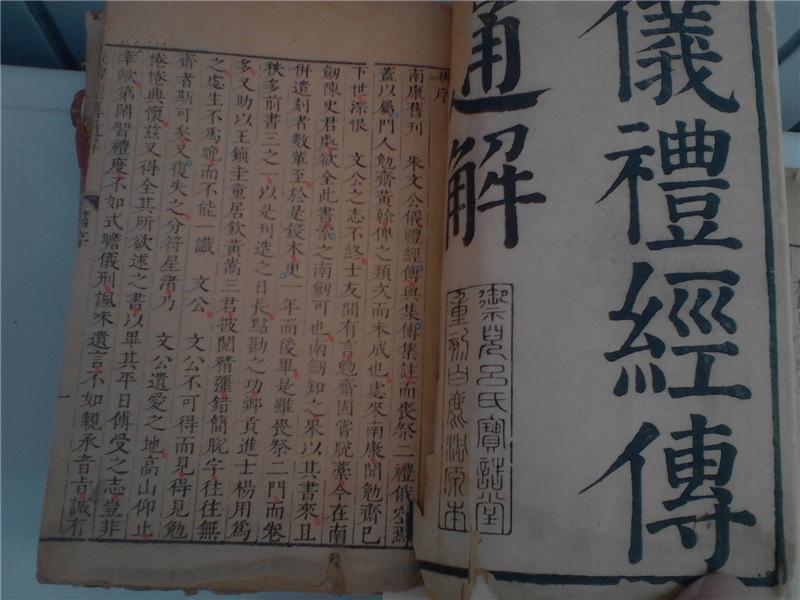 儀禮經傳
通解
禦兒呂氏寶誥堂
重刻白鹿洞原本
序
南康舊刊　朱文公儀禮經傳與集傳集註而喪祭二禮俄空焉
蓋以屬門人勉齋黃榦俾之類次而未成也虙來南康聞勉齋已
下世深恨　文公之志不終士友間有言勉齋固嘗脫藁今在南
劒陳史君處欲全此書索之南劒可也南劒知之果以其書來且
併遣刻者數輩至於是鋟木更一年而後畢是雖喪祭二門而卷
秩多前書三之一以是刊造之日長點勘之功鄉貢進士楊用為
多又助以王鎮圭童居欽黃嵩三君披閱精彊錯簡脫字往往無
之虙生不為晚而不能一識　文公　文公不可得而見得見勉
齋者斯可矣又復失之分符星渚乃　文公遺愛之地高山仰止
惓惓興懷茲又得全其所欲述之書以畢其平日傅受之志豈非
幸歟第閑習禮度不如式瞻儀刑諷味遺言不如親承音旨誠有
舊序
一